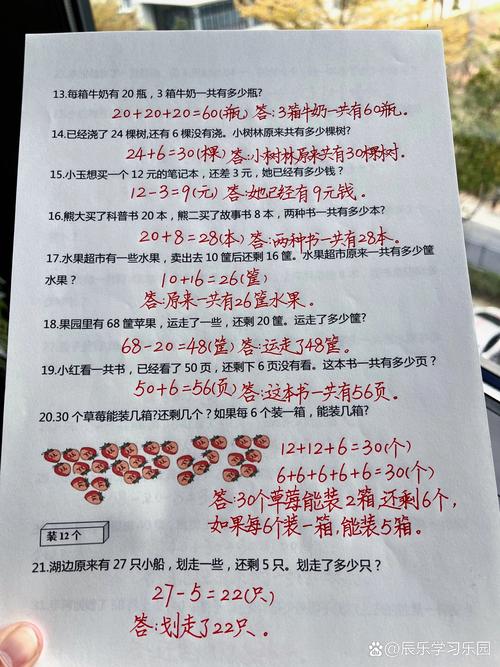 13.每箱牛奶有 20 瓶，3 箱牛奶一共有多少瓶?
20+20+20=60(瓶) 答:3箱牛奶一共有60瓶。
14.已经浇了 24 棵树,还有 6 棵没有浇。小树林原来共有多少棵树?
24+6=30(棵) 答:小树林原来共有30棵树.
15.小玉想买一个 12 元的笔记本，还差 3 元，她已经有多少钱？
12-3=9(元) 答:她已经有9元钱。
16.熊大买了科普书 20 本，熊二买了故事书 8 本，两种书一共有多少本?
20+8=28(本) 答:两种书一共有28本。
17.水果超市有一些水果，卖出去 10 筐后还剩 16 筐。水果超市原来一共有多少筐
水果？ 10+16=26(筐)
答:原来一共有26筐水果。
18.果园里有 68 筐苹果，运走了一些，还剩 20 筐。运走了多少筐?
68-20=48(筐) 答:运走了48筐。
19.小红看一共书，已经看了 50 页，还剩下 6 页没有看。这本书一共有多少页？
50+6=56(页) 答:这本书一共有56页.
20.30 个草莓能装几箱?还剩几个？如果每 6 个装一箱，能装几箱?
12+12+6=30(个)
6+6+6+6+6=30(个)
答:30个草莓能装2箱,还剩6个,
如果每6个装一箱,能装5箱。
装 12 个
21.湖边原来有 27 只小船，划走一些，还剩 5 只。划走了多少只？
27-5=22(只)
答:划走了22只。
百家号/辰乐学习乐园